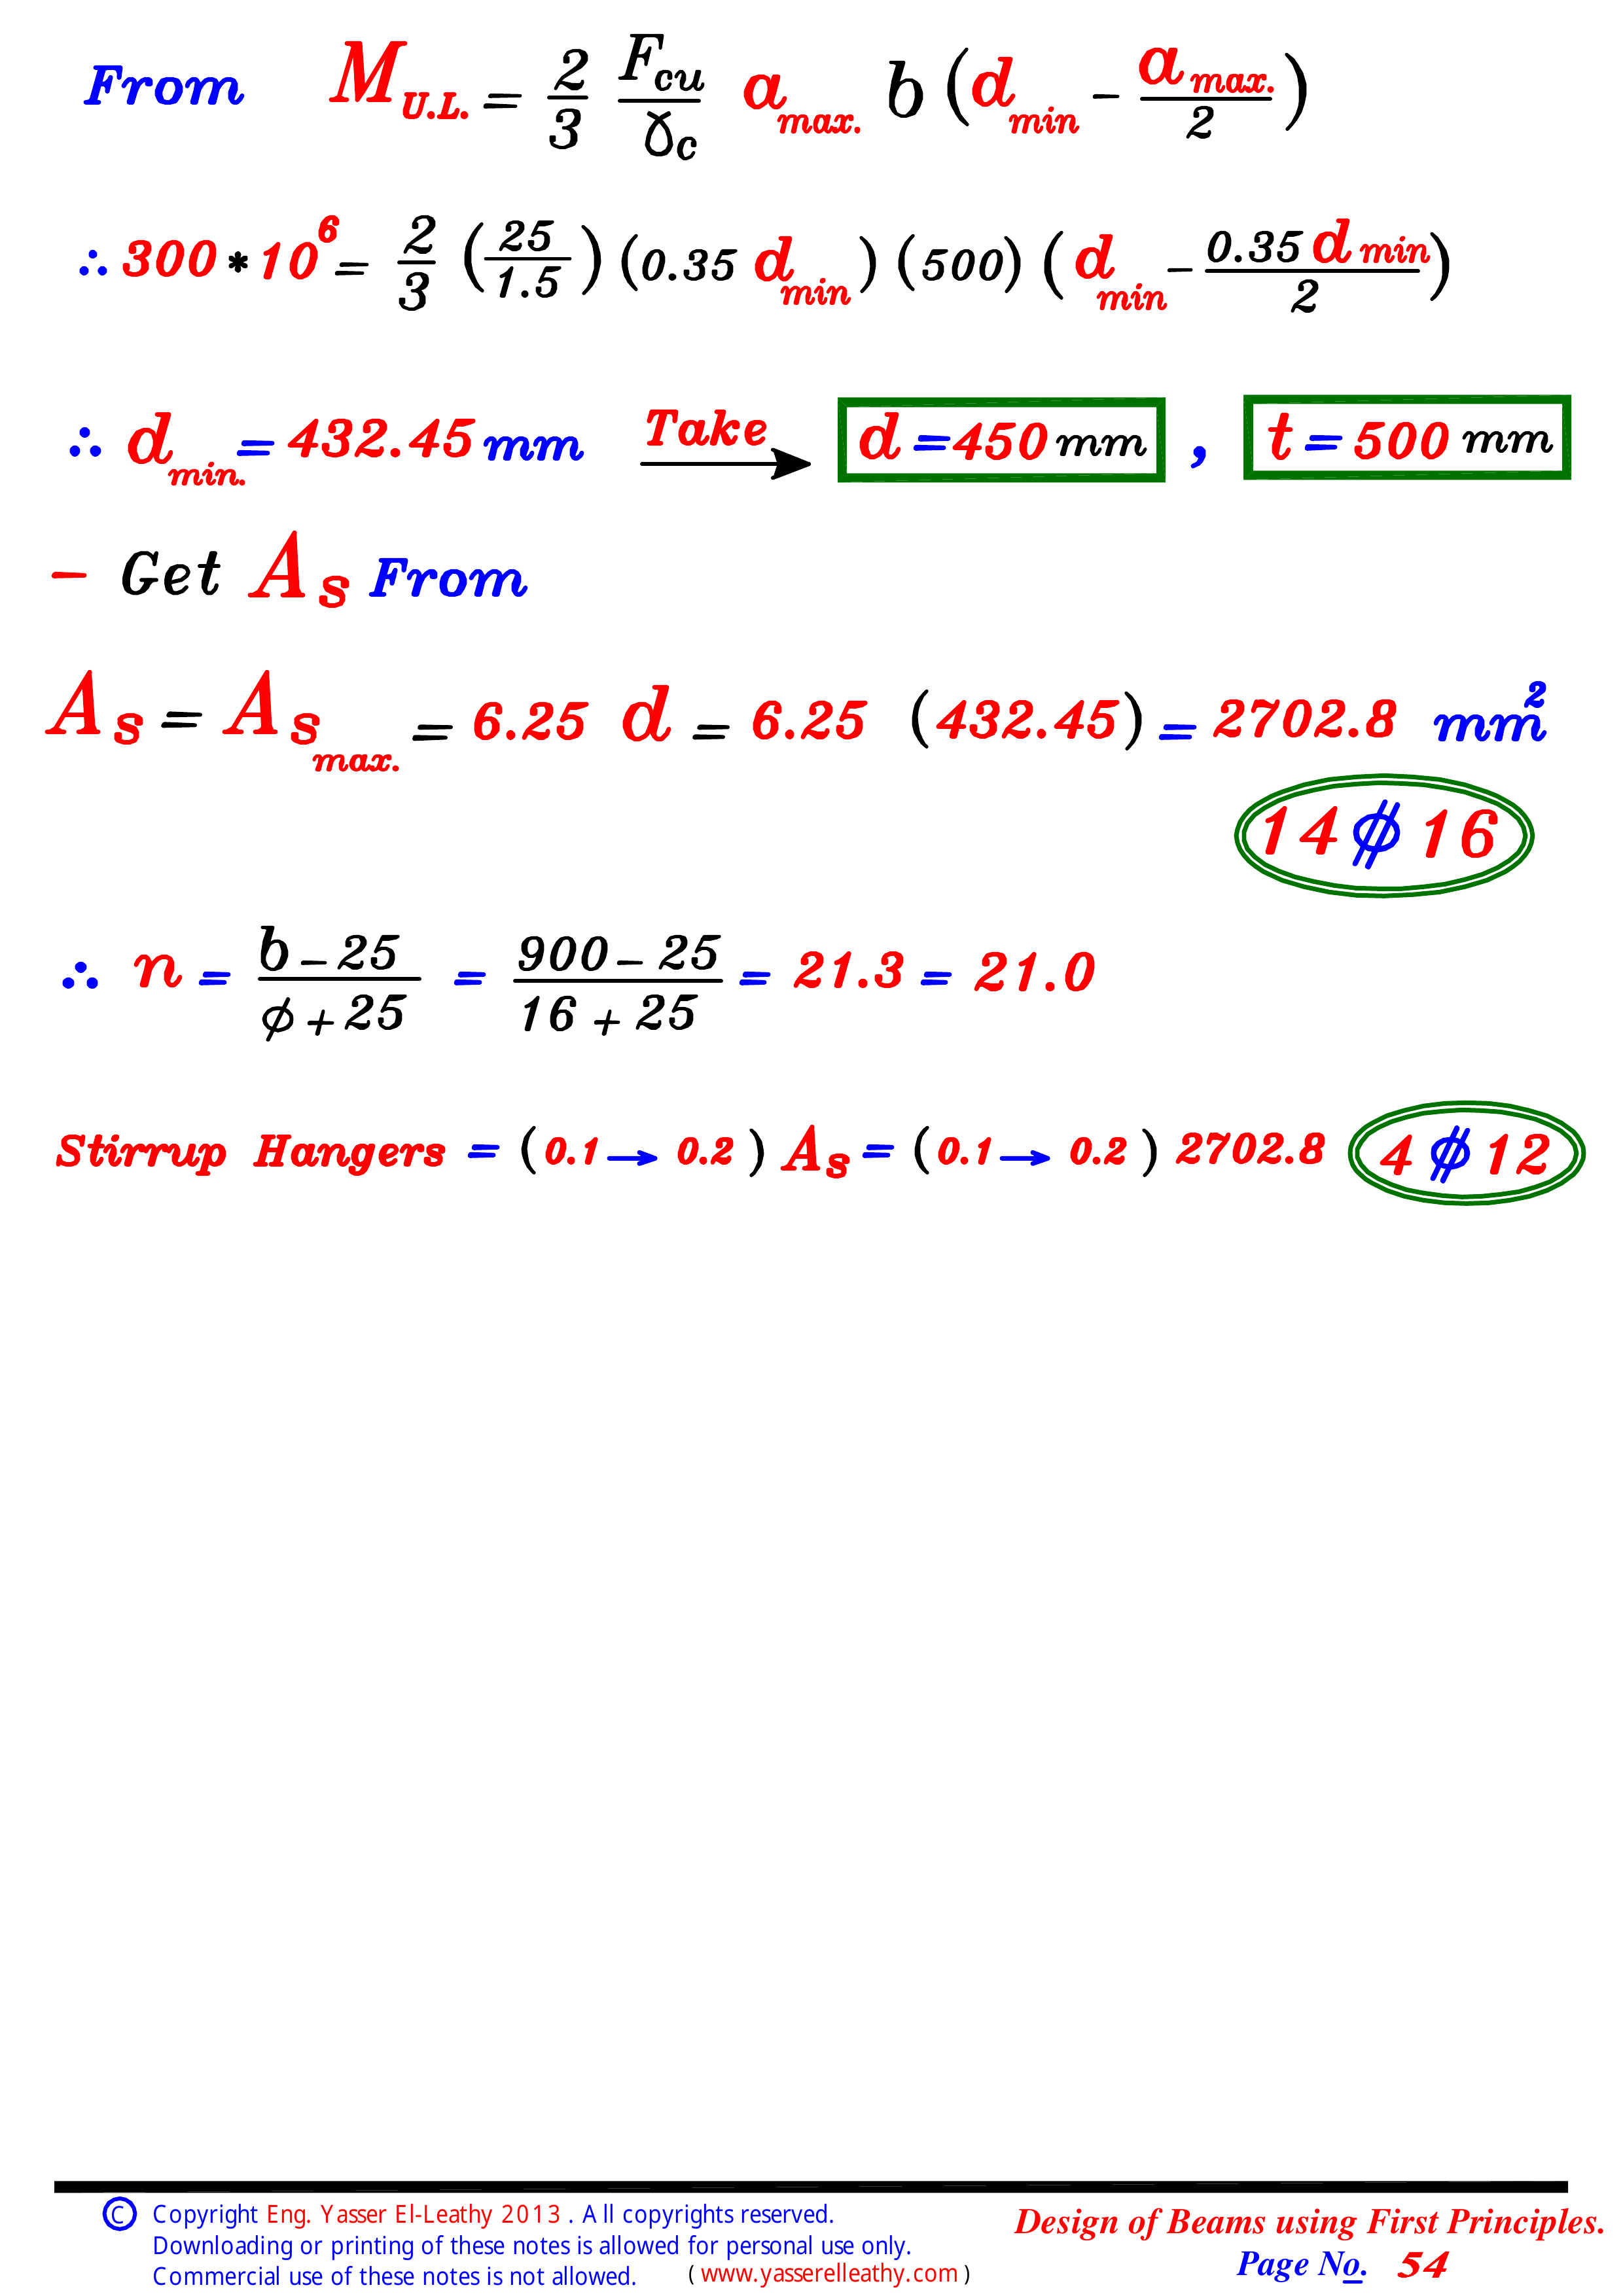 From M U.L. = 2/3 Fcu/γc a max. b (d min - a max./2)
∴ 300 * 10^6 = 2/3 (25/1.5) (0.35 d min) (500) (d min - 0.35 d min/2)
∴ d min. = 432.45 mm Take d = 450 mm , t = 500 mm
- Get As From
As = As max. = 6.25 d = 6.25 (432.45) = 2702.8 mm²
14 ϕ 16
∴ n = b - 25/ϕ + 25 = 900 - 25/16 + 25 = 21.3 = 21.0
Stirrup Hangers = (0.1 → 0.2) As = (0.1 → 0.2) 2702.8 4 ϕ 12
© Copyright Eng. Yasser El-Leathy 2013 . All copyrights reserved.
Downloading or printing of these notes is allowed for personal use only.
Commercial use of these notes is not allowed. ( www.yasserelleathy.com )
Design of Beams using First Principles.
Page No. 54